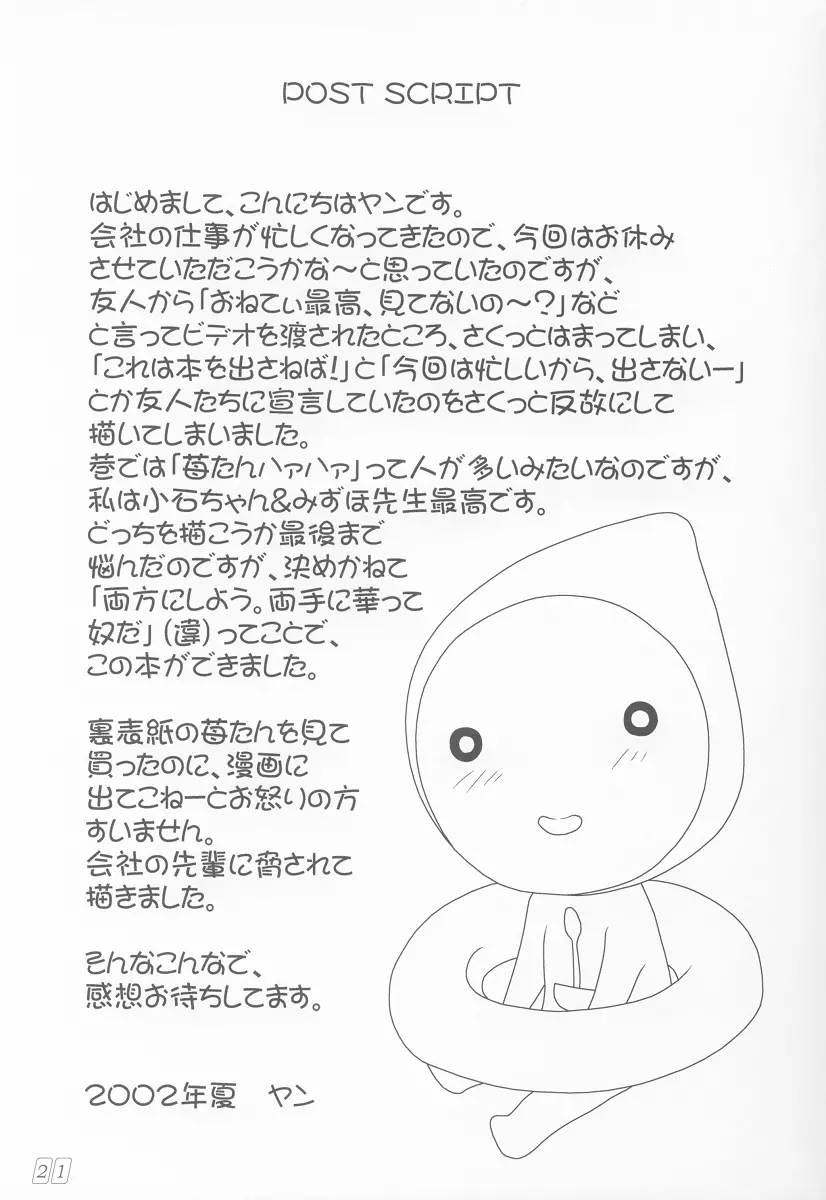 POST SCRIPT
はじめまして、こんにちはヤンです。
会社の仕事が忙しくなってきたので、今回はお休み
させていただこうかな〜と思っていたのですが、
友人から「おねてぃ最高、見てないの〜?」など
と言ってビデオを渡されたところ、さくっとはまってしまい、
「これは本を出さねば!」と「今回は忙しいから、出さないー」
とか友人たちに宣言していたのをさくっと反故にして
描いてしまいました。
巷では「苺たんハァハァ」って人が多いみたいなのですが、
私は小石ちゃん&みずほ先生最高です。
どっちを描こうか最後まで
悩んだのですが、決めかねて
「両方にしよう。両手に華って
奴だ」(違)ってことで、
この本ができました。
裏表紙の苺たんを見て
買ったのに、漫画に
出てこねーとお怒りの方
すいません。
会社の先輩に脅されて
描きました。
そんなこんなで、
感想お待ちしてます。
2002年夏　ヤン
21